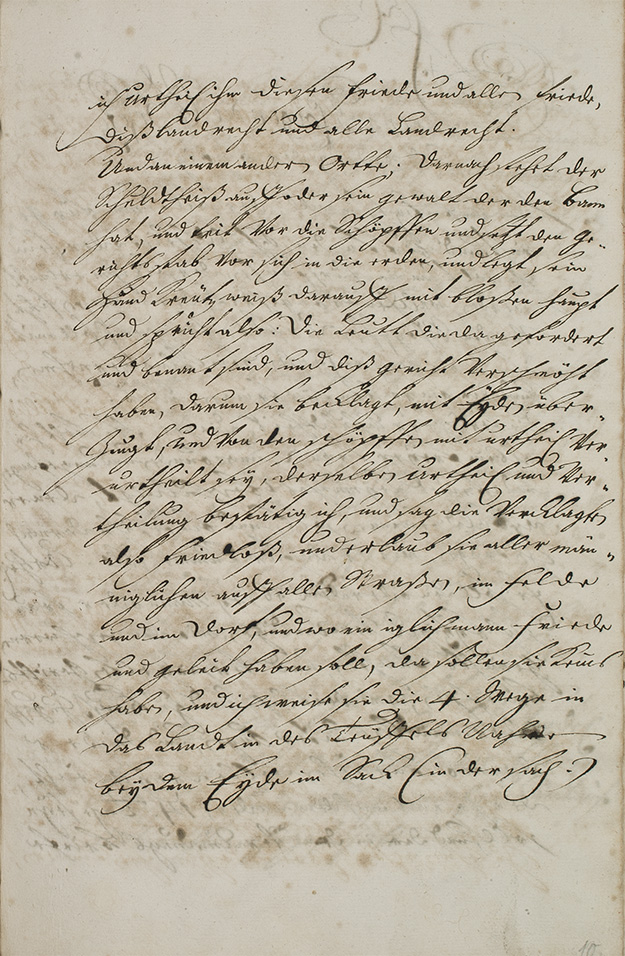 ich urtheil ihm diesen Friede und allen Friede,
dißlandrecht und alle Landrecht.
Und an einem andern Ortte; Darnach stehet der
Schuldtheiß auff oder sein gewalt der den Bann
hat, und tritt vor die Schöpffen und setzt den Ge-
richtsstab vor sich in die erden, und legt sein
Hand Kreützweiß darauff, mit blosen haupt
und spricht also: Die Leutt die da gefordert
und benant sind, und diß gericht verschmöht
haben, darum sie beklagt, mit Eyden über-
zeugt, und von den schöpffen mit urtheil ver-
urtheilt sey, derselben urtheil und Ver-
theilung bestätig ich, und sag die Verklagten
also Friedloß, und erlaub sie aller män-
niglichen auff allen Straßen, im Felde
und im Dorf, und wo ein iglich mann Friede
und geleit haben soll, da sollen sie Keins
haben, und ich weise sie die 4. Wege in
das Landt in des Teüffels Nahme
bey dem Eyde im Sack (in der sach.)
10.